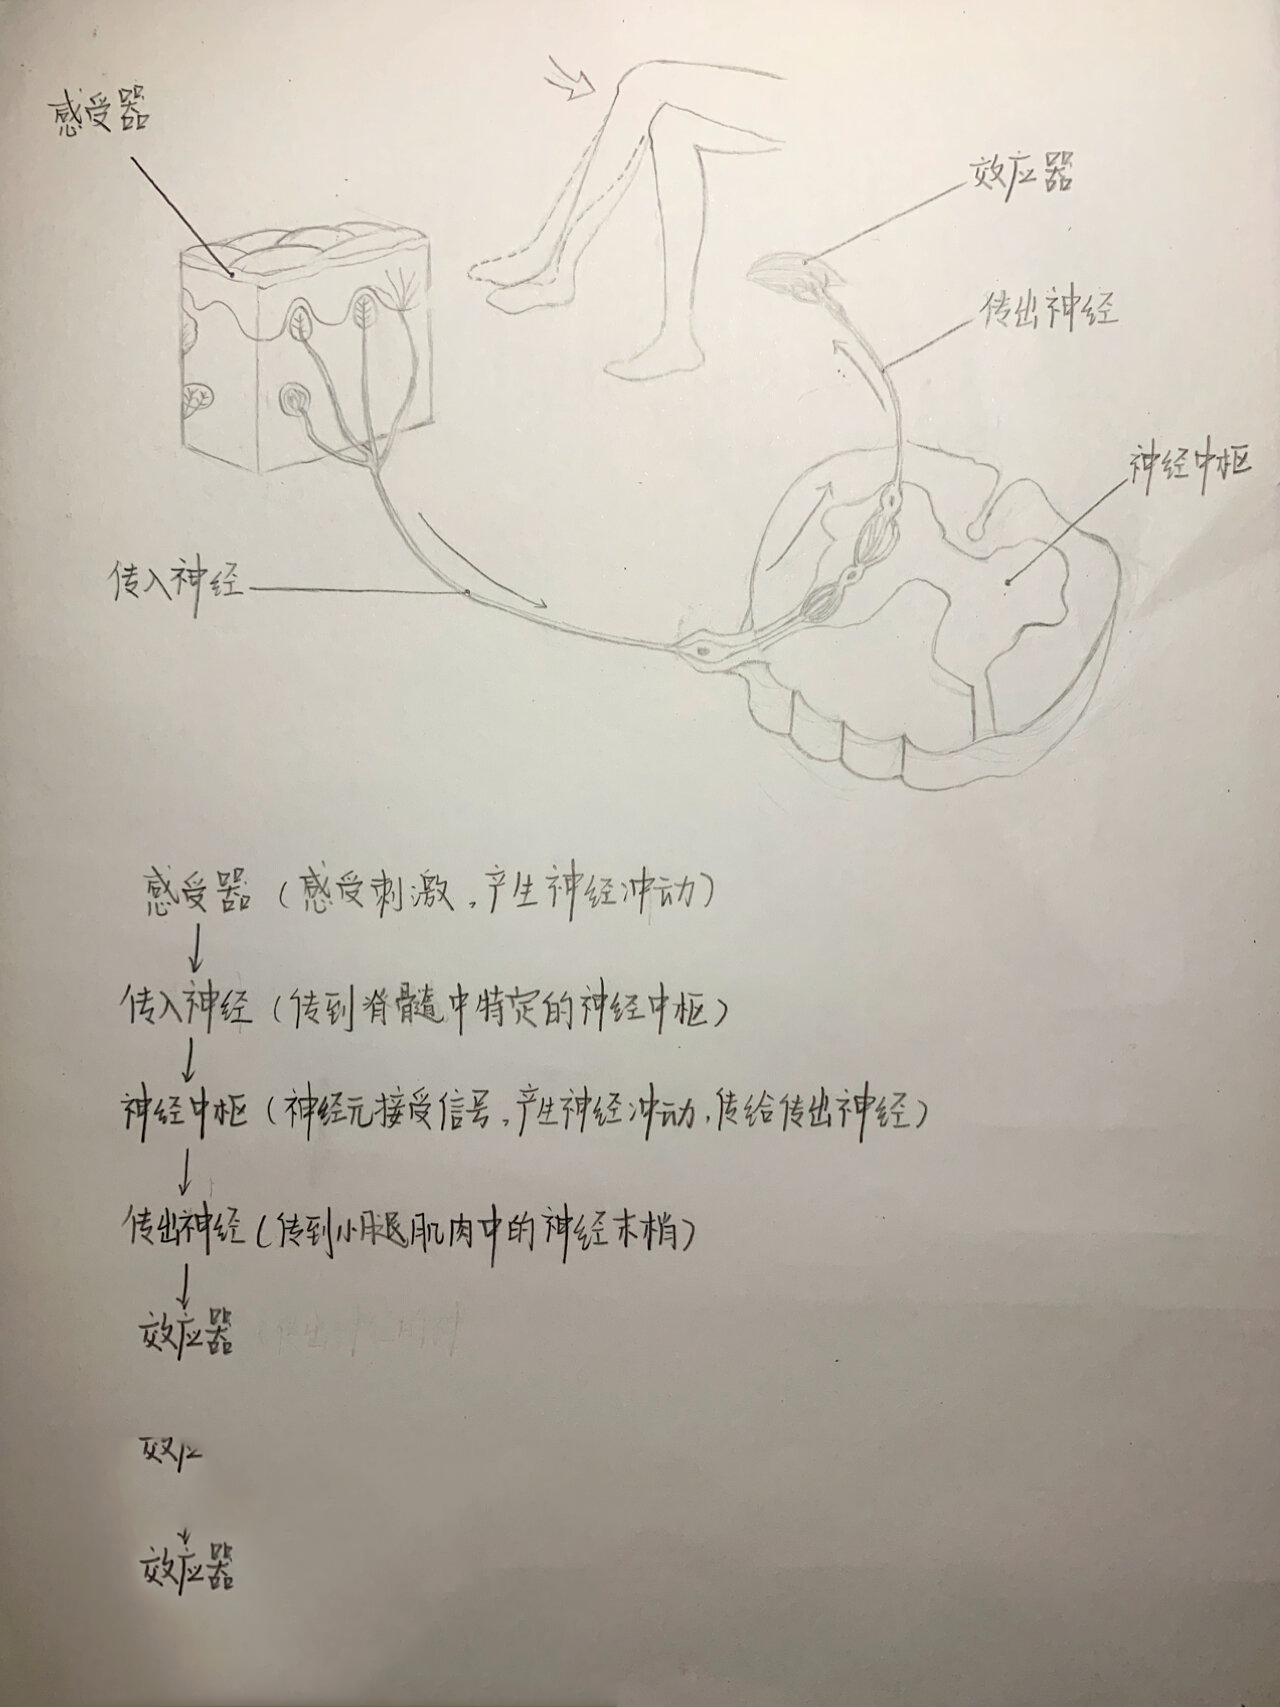 感受器
效应器
传出神经
神经中枢
传入神经
感受器（感受刺激，产生神经冲动）
传入神经（传到脊髓中特定的神经中枢）
神经中枢（神经元接受信号，产生神经冲动，传给传出神经）
传出神经（传到小腿肌肉中的神经末梢）
效应器
效应器